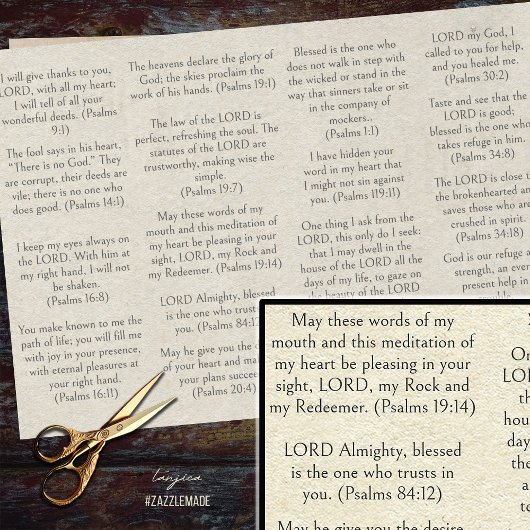 I will give thanks to you,
LORD, with all my heart;
I will tell of all your
wonderful deeds. (Psalms
9:1)
The fool says in his heart,
“There is no God.” They
are corrupt, their deeds are
vile; there is no one who
does good. (Psalms 14:1)
I keep my eyes always on
the LORD. With him at
my right hand, I will not
be shaken.
(Psalms 16:8)
You make known to me the
path of life; you will fill me
with joy in your presence,
with eternal pleasures at
your right hand.
(Psalms 16:11)
The heavens declare the glory of
God; the skies proclaim the
work of his hands. (Psalms 19:1)
The law of the LORD is
perfect, refreshing the soul. The
statutes of the LORD are
trustworthy, making wise the
simple.
(Psalms 19:7)
May these words of my
mouth and this meditation of
my heart be pleasing in your
sight, LORD, my Rock and
my Redeemer. (Psalms 19:14)
LORD Almighty, blessed
is the one who trusts in
you. (Psalms 84:12)
May he give you the
of your heart and ma
your plans succee
(Psalms 20:4)
Blessed is the one who
does not walk in step with
the wicked or stand in the
way that sinners take or sit
in the company of
mockers..
(Psalms 1:1)
I have hidden your
word in my heart that
I might not sin against
you. (Psalms 119:11)
One thing I ask from the
LORD, this only do I seek:
that I may dwell in the
house of the LORD all the
days of my life, to gaze on
the beauty of the LORD
LORD my God, I
called to you for help,
and you healed me.
(Psalms 30:2)
Taste and see that the
LORD is good;
blessed is the one who
takes refuge in him.
(Psalms 34:8)
The LORD is close to
the brokenhearted and
saves those who are
crushed in spirit.
(Psalms 34:18)
God is our refuge a
strength, an ever
present help in
May these words of my
mouth and this meditation of
my heart be pleasing in your
sight, LORD, my Rock and
my Redeemer. (Psalms 19:14)
LORD Almighty, blessed
is the one who trusts in
you. (Psalms 84:12)
May he give you the desire
On
LOR
th
hou
days
the
a
to
lanjica
#ZAZZLEMADE